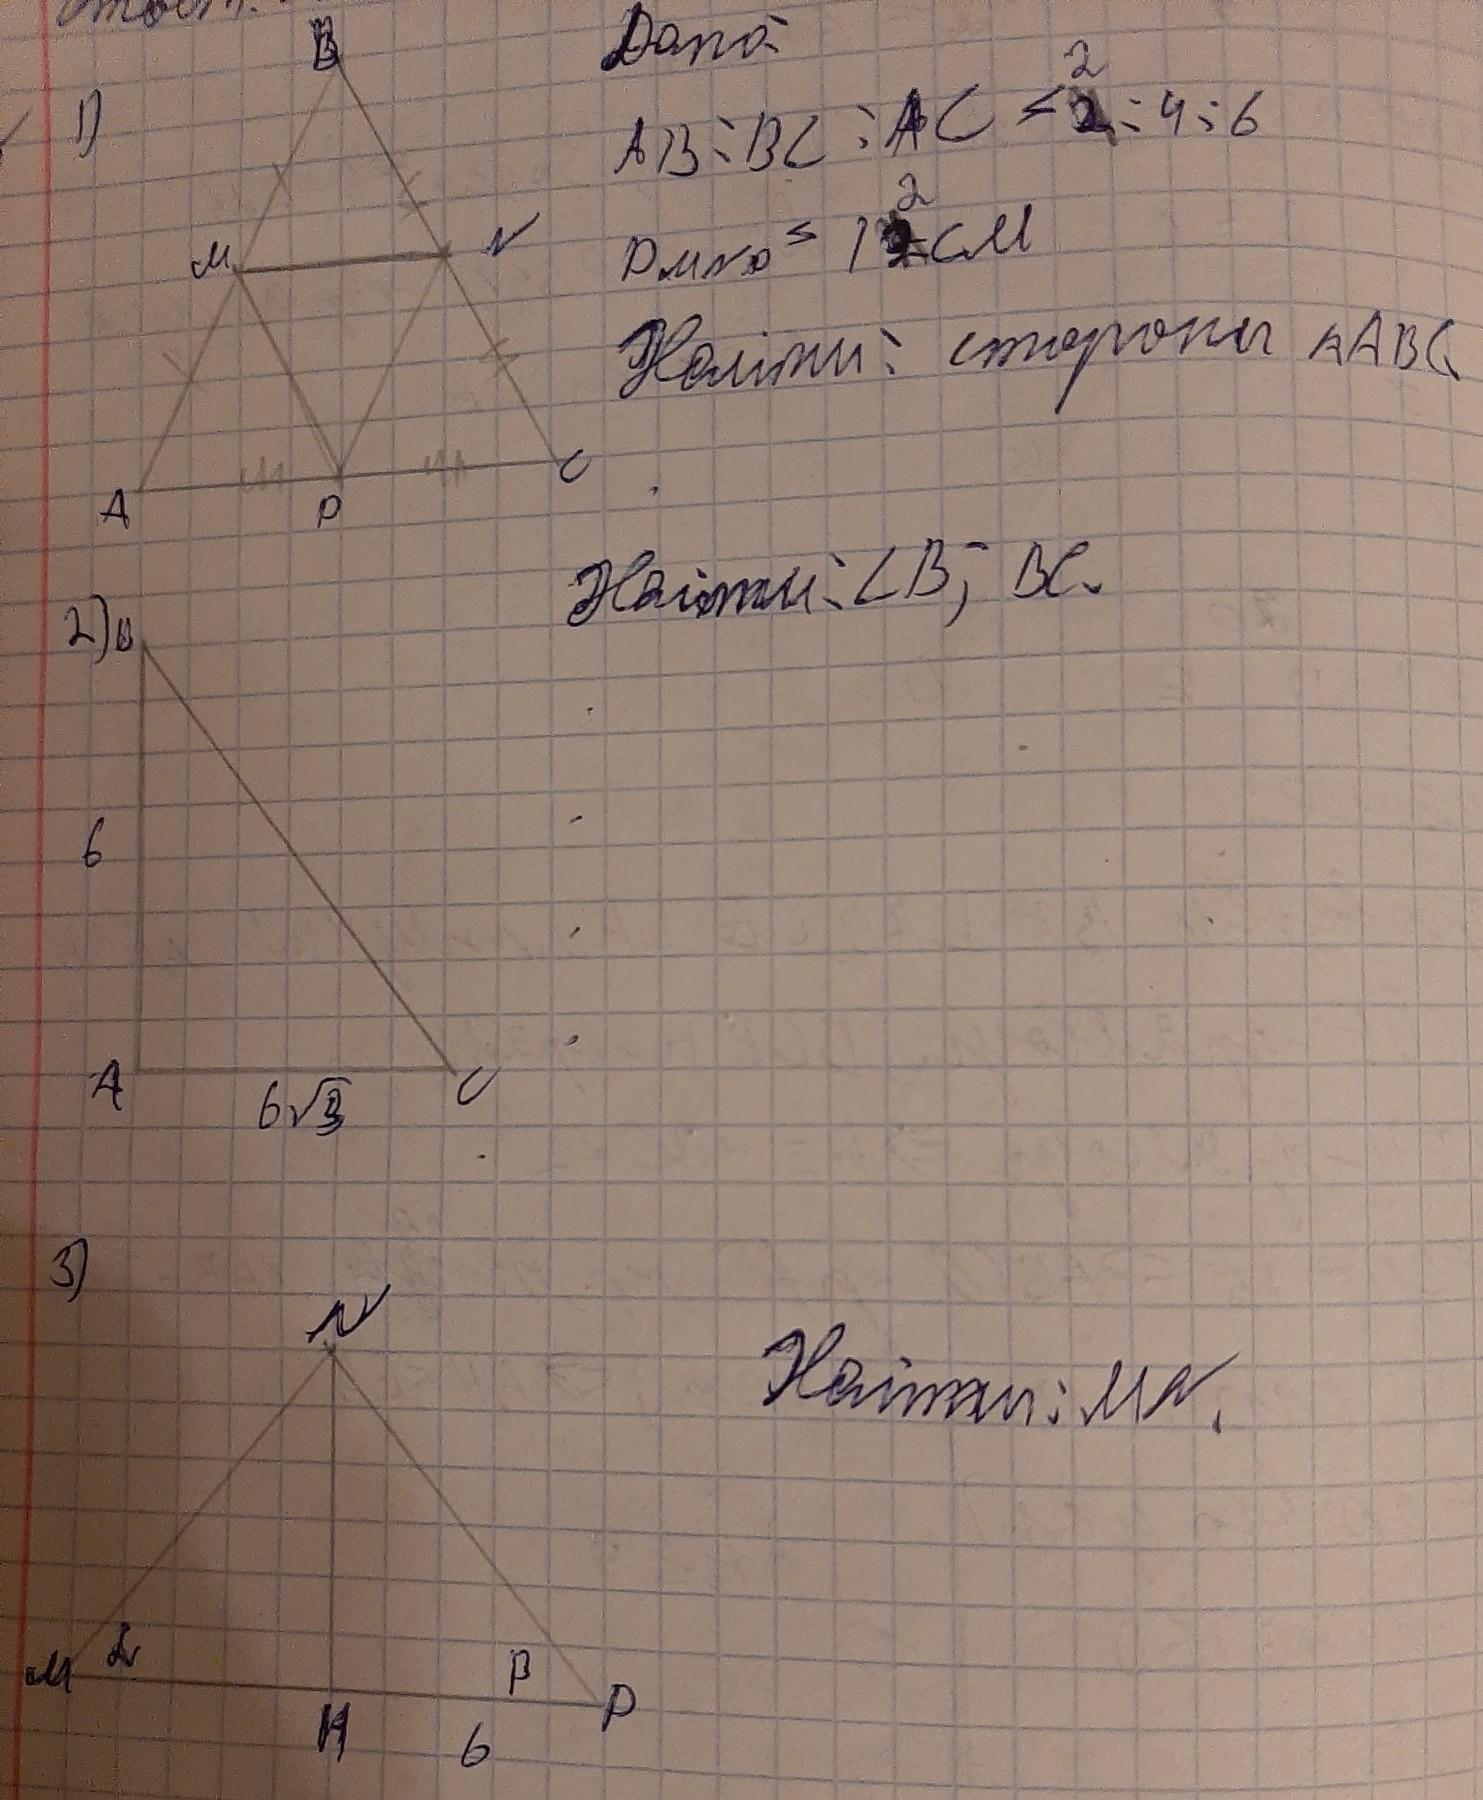 1)
B
M
N
A
P
C
Дано:
AB:BC:AC = 2:4:6
PMNP = 12 см
Найти: стороны △ABC.
2)
B
6
A
6√3
C
Найти: ∠B; BC.
3)
N
M
α
H
β
6
P
Найти: MN.